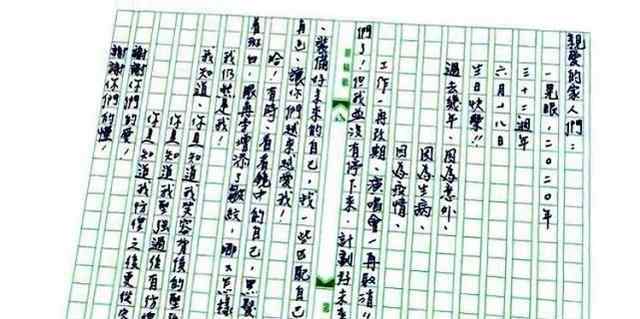 親愛的家人們：
一晃眼，二○二○年
三十二週年
六月十八日
生日快樂!!
過去幾年、因為意外、
因為生病、
因為疫情、
工作一再改期、演唱會一再取消!!
們了！但我並沒有停下來，計劃好未來
、裝備好未來的自己，找一些匹配自己
自己、讓你們越來越愛我！
哈！有時、看看鏡中的自己，黑髮
着斑白，眼角增添了皺紋，哪又怎樣
我仍然是我！
我知道、你真知道我笑容背後的堅
你真知道我堅強過後有彷
你真知道我彷徨之後更從容
謝謝你們的愛！
謝謝你們的懂！